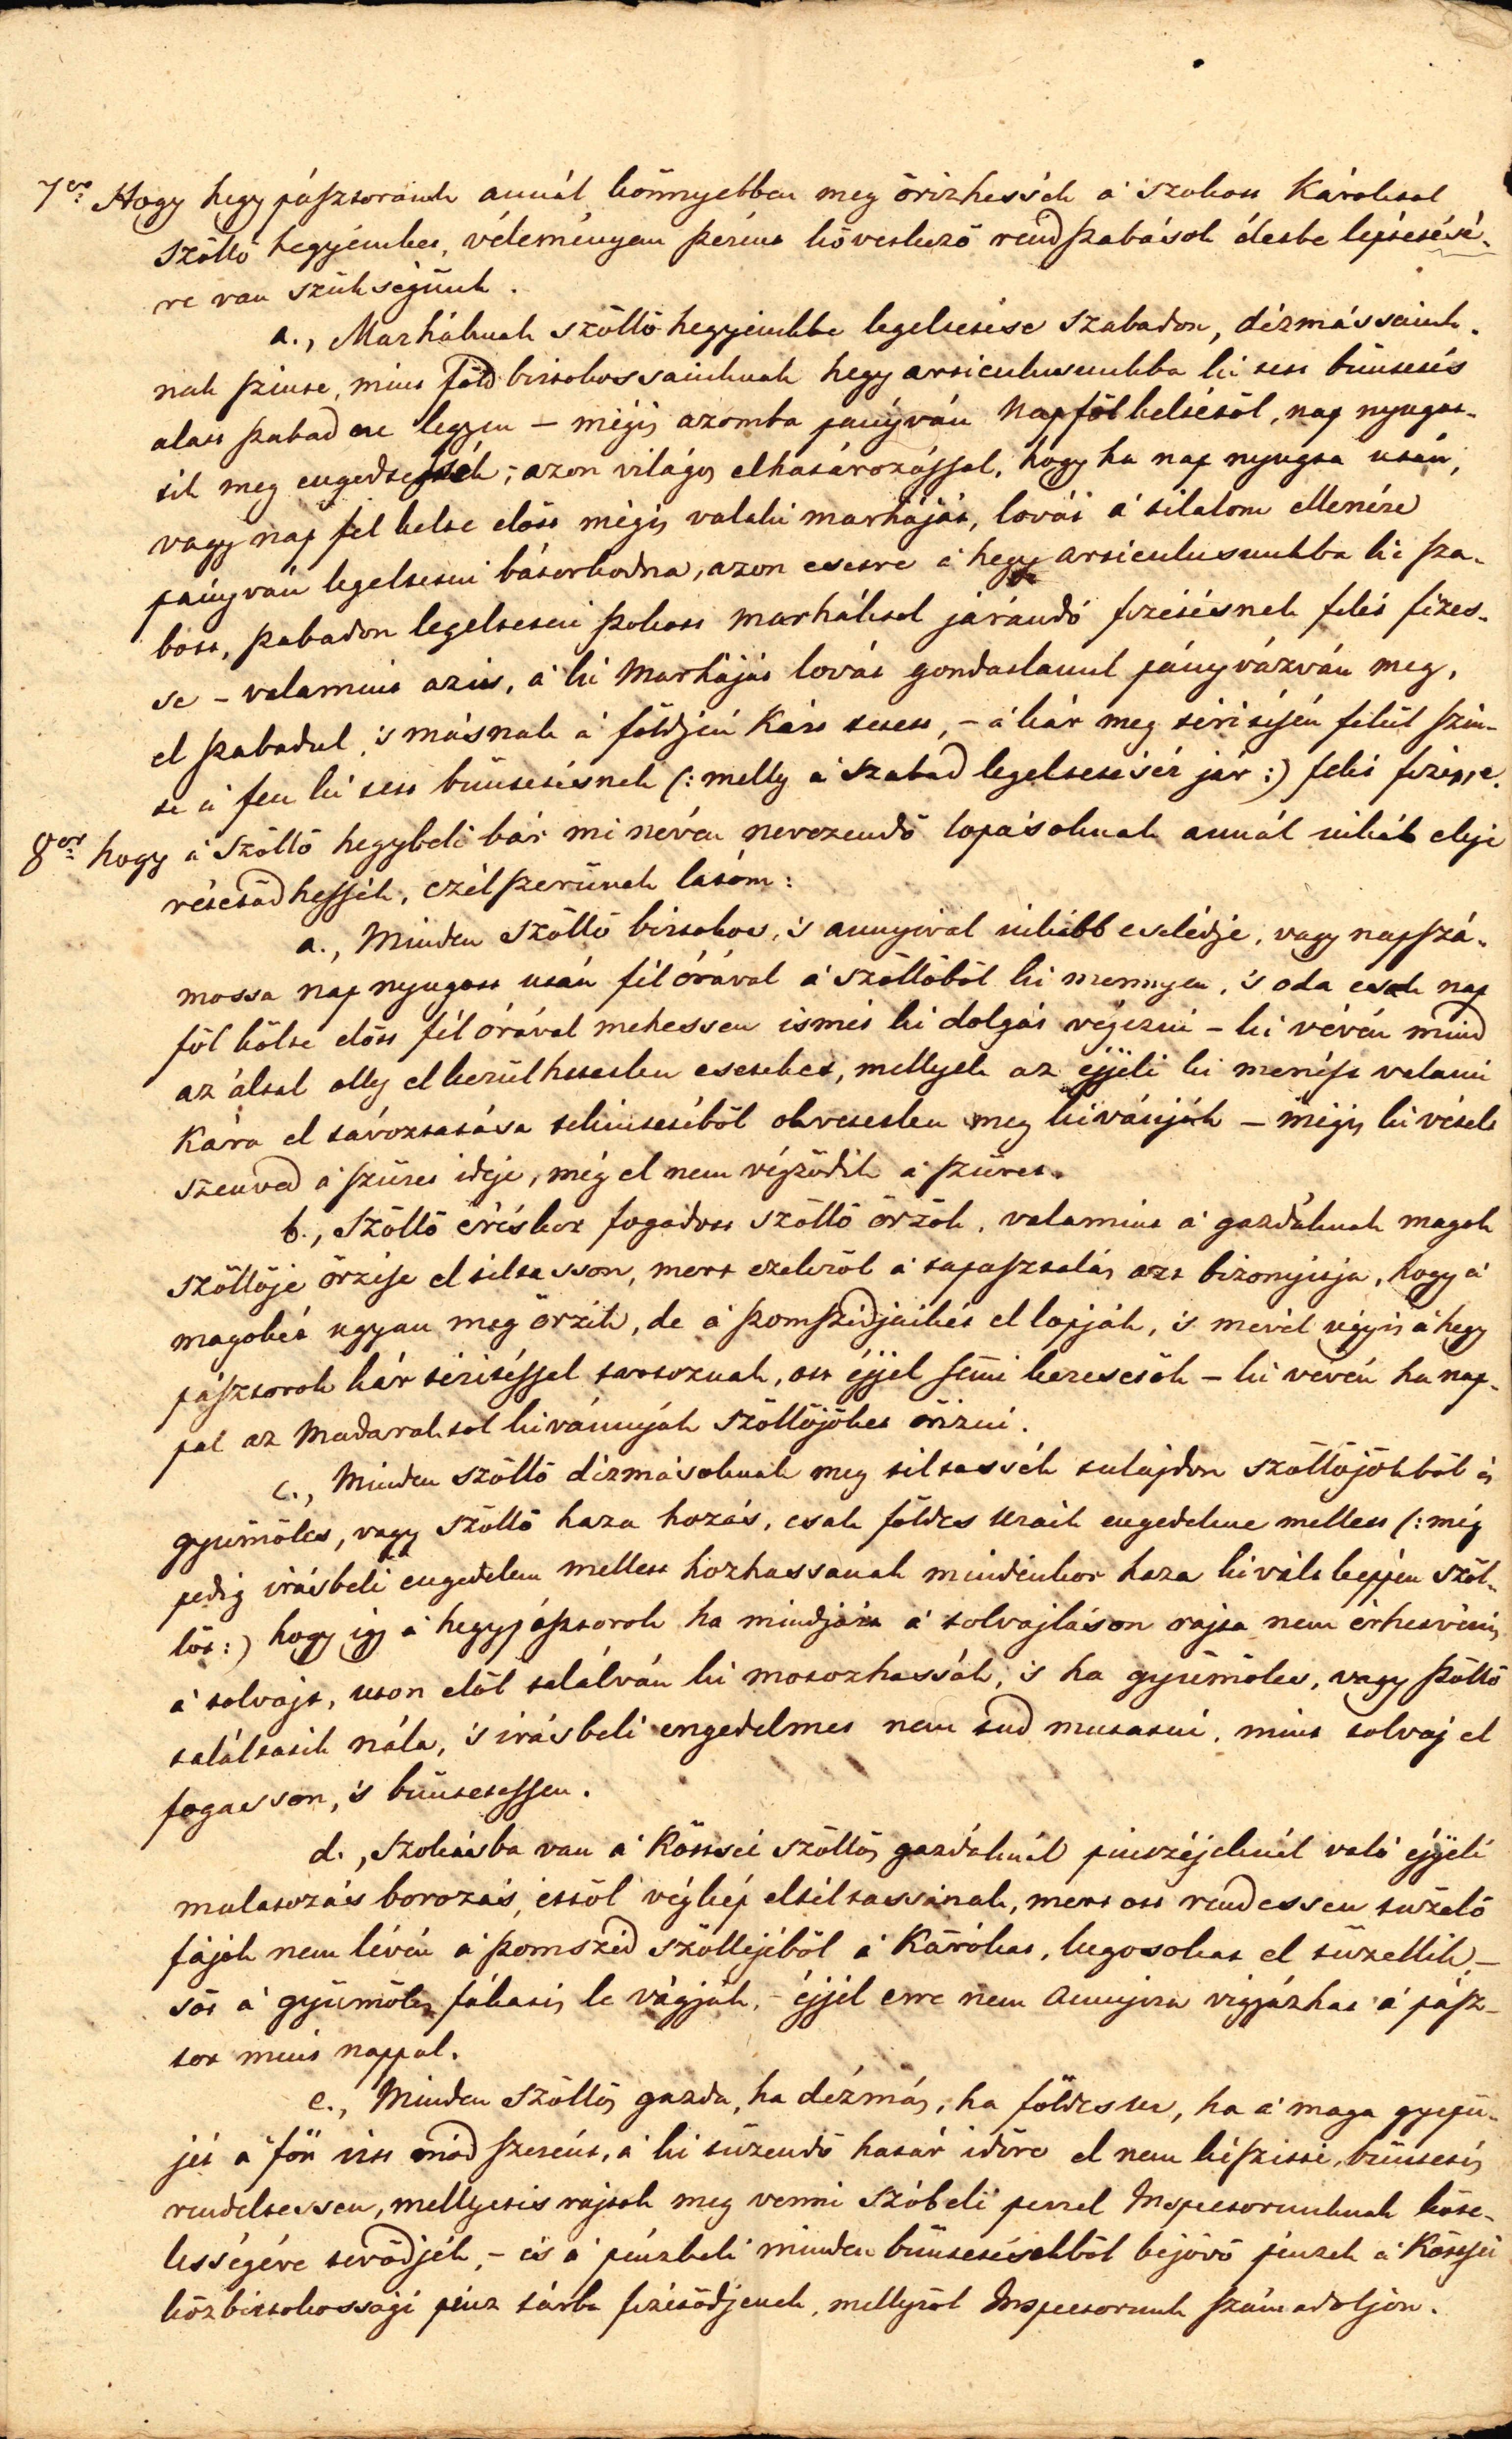 7er Hogy hegy pásztoraink annál könnyebben meg örizhessék a' szokott Károktol
Szöllö hegyeinket, véleményem szerint következö rend szabások életbe léptetésé-
re van szükségünk.
a., Marháknak szöllö hegyeinkbe legeltetése szabadon, dézmássaink-
nak szinte, mint föld birtokossainknak hegy articulusunkba ki tett büntetés
alatt szabad ne legyen – mégis azomba pányván nap föl keltétöl, nap nyugat-
tik meg engedtessék; azon világos elhatározással, hogy ha nap nyugta után,
vagy nap fel kelte elött mégis valaki marháját, lovát a' tilalom ellenére
pányván legeltetni bátorkodna, azon esetre a' hegy articulusunkba ki sza-
bott, szabadon legeltetni szokott marháktol járandó fizetésnek felét fizes-
se – valamint azis, a' ki Marháját lovát gondatlanul pányvázván meg,
el szabadul, 's másnak a' földjén Kárt teszen, – a' kár meg téritésén felül szin-
te a' fen ki tett büntetésnek (: melly a' szabad legeltetésért jár :) felét fizesse.
8er hogy a' Szöllö hegybeli bár mi néven nevezendö lopásoknak annál inkáb eleje
vétetödhessék, czélszerünek látom:
a., Minden szöllö birtokos, 's annyival inkább cselédje, vagy napszá-
mossa nap nyugott után fél órával a' szöllöböl ki mennyen, 's oda csak nap
föl költe elött fél órával mehessen ismét ki dolgát végezni – ki vévén mind
az által olly elkerülhetetlen eseteket, mellyek az éjjeli ki menést valami
Kára el távoztatása tekintetéböl okvetetlen meg kivánják – mégis kivételt
szenved a' szüret ideje, még el nem végzödik a' szüret.
b., Szöllö éréskor fogadott szöllö örzök, valamint a' gazdáknak magok
szöllöje örzése el tiltasson, mert ezekröl a' tapasztalás azt bizonyitja, hogy a'
magokét ugyan meg örzik, de a' szomszédjaikét el lopják, 's mivel úgyis a' hegy
pásztorok kár téritéssel tartoznak, ott éjjel semmi keresetök – ki vévén ha nap-
pal az Madaraktol kivánnyák szöllöjöket örizni.
c., Minden szöllö dézmásoknak meg tiltassék tulajdon szöllöjökböl is
gyümölcs, vagy szöllö haza hozás, csak földes Uraik engedelme mellett (: még
pedig irásbeli engedelem mellett hozhassanak mindenkor haza kivált képpen szöl-
löt :) hogy igy a' hegypásztorok ha mindjárt a' tolvajláson rajta nem érhetvénis
a' tolvajt, uton elöl találván ki motozhassák, 's ha gyümölcs, vagy szöllö
találtatik nála, 's irásbeli engedelmet nem tud mutatni, mint tolvaj el
fogasson, 's büntetessen.
d., Szokásba van a' Köttsei szöllös gazdáknál pinczéjeknél való éjjeli
mulatozás borozás, ettöl végkép eltiltassanak, mert ott rendessen tüzelö
fájok nem lévén a' szomszéd szöllejéböl a' Karókat, lugosokat el tüzellik, –
söt a' gyümölts fákatis le vágják, – éjjel erre nem annyira vigyázhat a' pász-
tor mint nappal.
e., Minden szöllös gazda, ha dézmás, ha földes ur, ha a' maga gyepü-
jét a' fön irtt mód szerént, a' ki tüzendö határ idöre el nem készitti, büntetés
rendeltessen, mellyetis rajtok meg venni szóbeli perrel Inspectorunknak köte-
lességére tevödjék, – és a' pénzbeli minden büntetésekböl béjövö pénzek a' Köttsei
közbirtokossági pénz tárba fizetödjenek, mellyröl Inspectorunk szám adoljon.